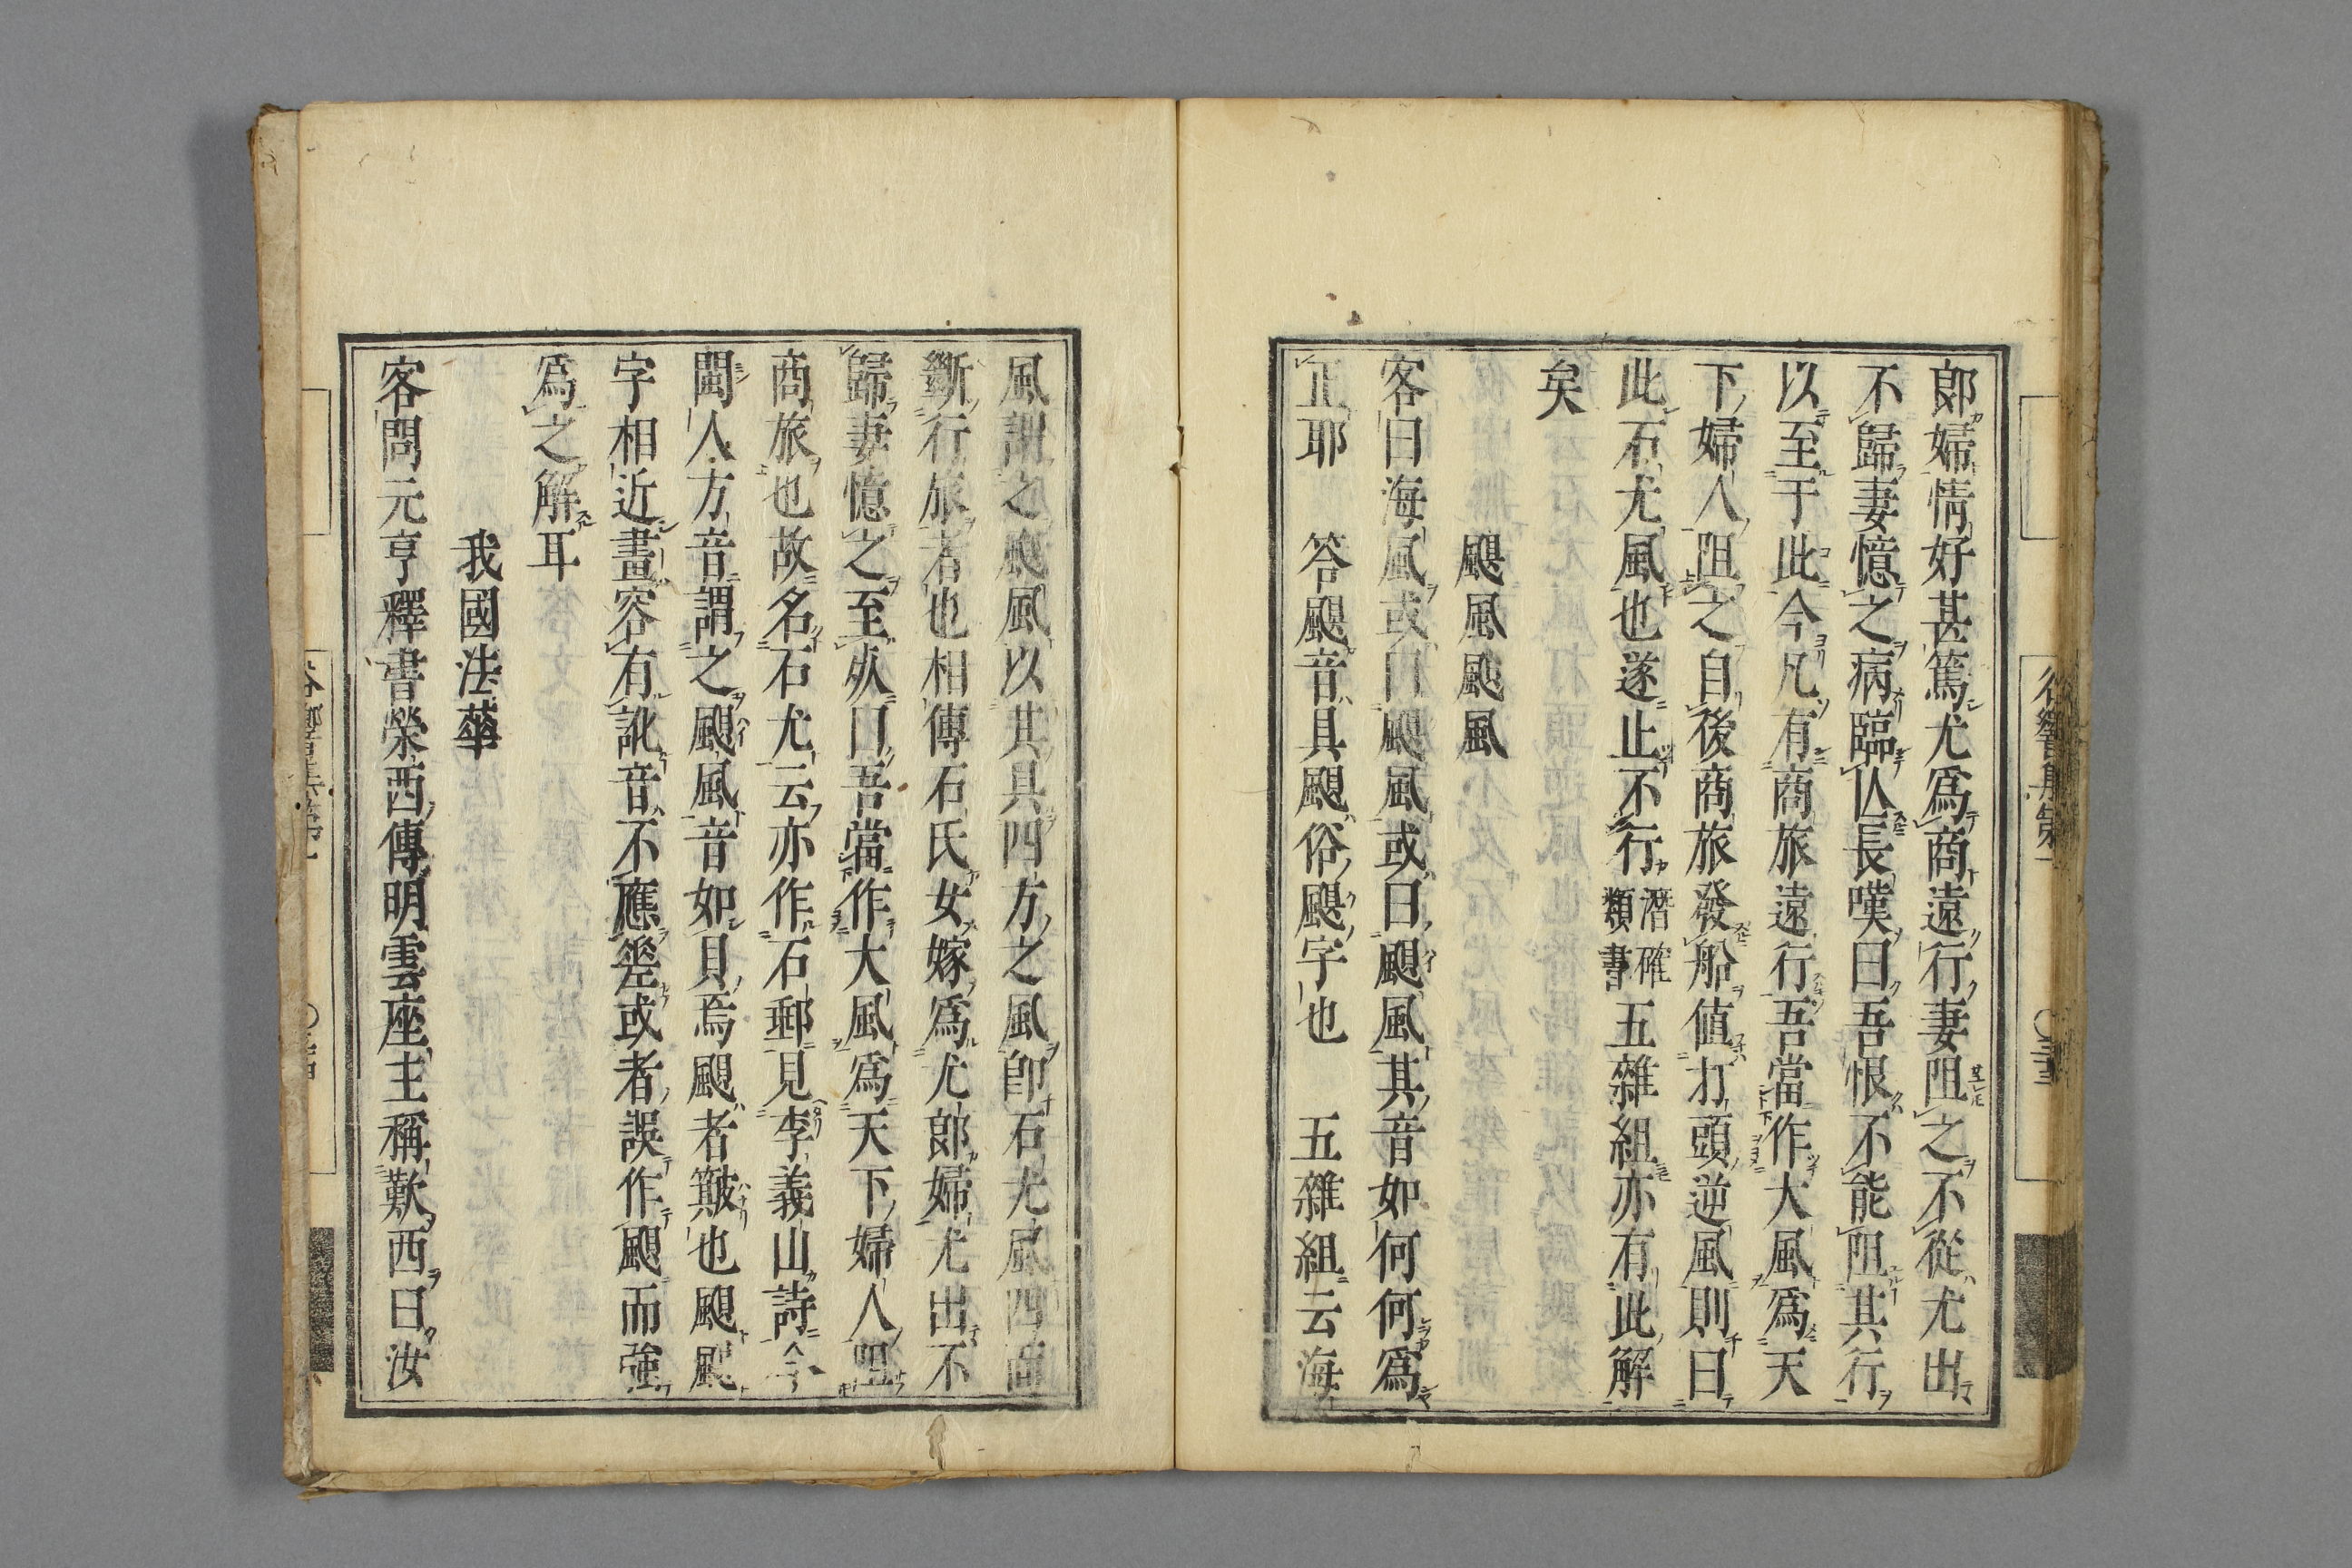 郎婦情好甚篤尤爲商遠行妻阻之不從尤出
不歸妻憶之病臨亾長嘆曰吾恨不能阻其行
以至于此今凡有商旅遠行吾當作大風爲天
下婦人阻之自後商旅發船値打頭逆風則曰
此石尤風也遂止不行潛確類書五雜組亦有此解
矣
颶風颶風
客曰海風或曰颶風或曰颶風其音如何何爲
正耶　答颶音具颶俗颶字也　五雜組云海
風謂之颶風以其具四方之風卽石尤風四面
斷行旅者也相傳石氏女嫁爲尤郎婦尤出不
歸妻憶之至死曰吾當作大風爲天下婦人阻
商旅也故名石尤云亦作石郵見李義山詩今
閩人方音謂之颶風音如貝焉颶者簸也颶颶
字相近畫容有訛音不應差或者誤作颶而強
爲之解耳
我國法華
客問元亨釋書榮西傳明雲座主稱歎西曰汝